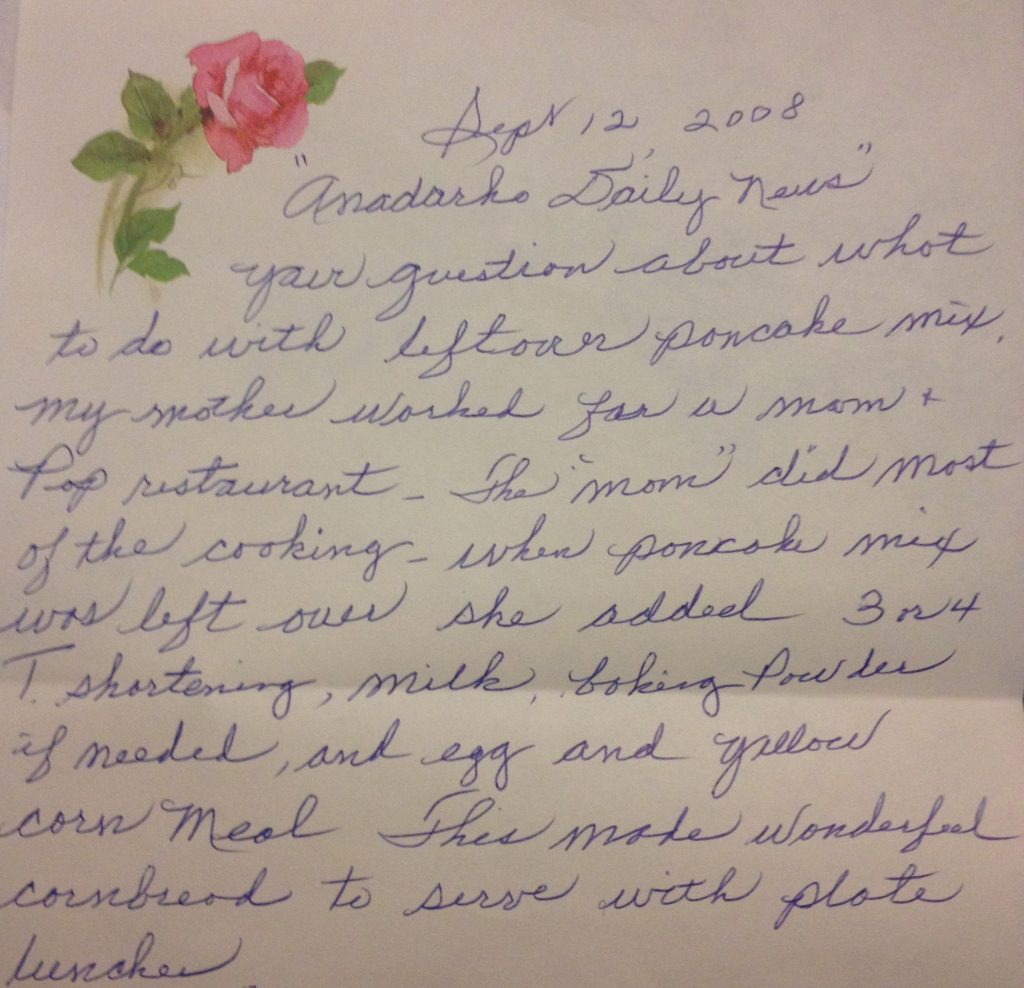 Sept 12, 2008
"Anadarko Daily News"
your question about what
to do with leftover pancake mix.
my mother worked for a mom +
Pop restaurant - The "mom" did most
of the cooking - when pancake mix
was left over she added 3 or 4
T. shortening, milk, baking Powder
if needed, and egg and yellow
corn Meal This made wonderful
cornbread to serve with plate
lunches